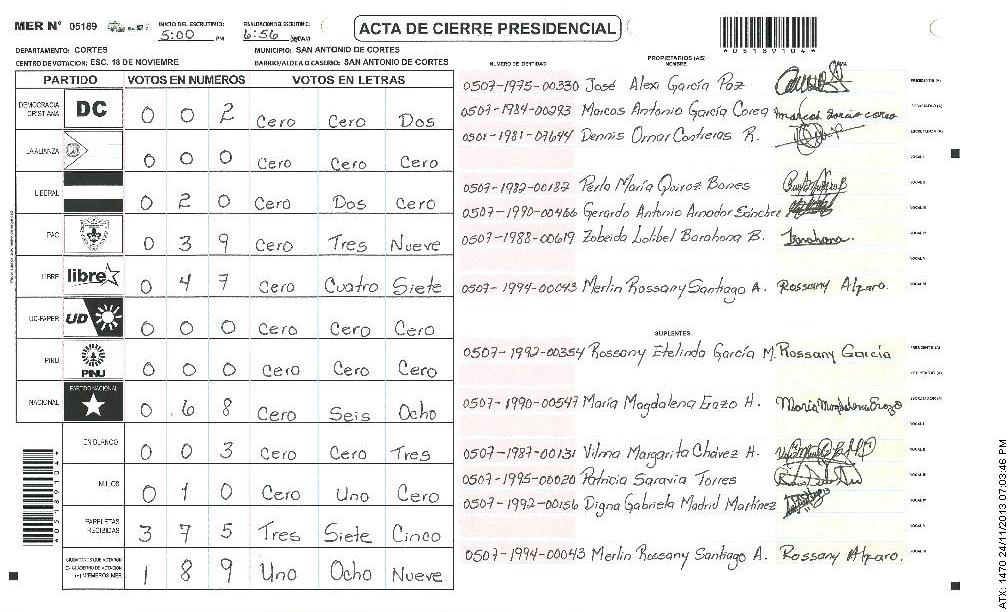 MER Nº 05189 INICIO DEL ESCRUTINIO: 5:00 PM FINALIZACION DEL ESCRUTINIO: 6:56 ACTA DE CIERRE PRESIDENCIAL
*05189104*
DEPARTAMENTO: CORTES MUNICIPIO: SAN ANTONIO DE CORTES
CENTRO DE VOTACION: ESC. 18 DE NOVIEMBRE BARRIO/ALDEA O CASERIO: SAN ANTONIO DE CORTES
PARTIDO VOTOS EN NUMEROS VOTOS EN LETRAS
DEMOCRACIA CRISTIANA DC 0 0 2 Cero Cero Dos
LA ALIANZA 0 0 0 Cero Cero Cero
LIBERAL 0 2 0 Cero Dos Cero
PAC 0 3 9 Cero Tres Nueve
LIBRE libre 0 4 7 Cero Cuatro Siete
UD-FAPER UD 0 0 0 Cero Cero Cero
PINU PINU 0 0 0 Cero Cero Cero
NACIONAL PARTIDO NACIONAL 0 6 8 Cero Seis Ocho
EN BLANCO 0 0 3 Cero Cero Tres
NULOS 0 1 0 Cero Uno Cero
PAPELETAS RECIBIDAS 3 7 5 Tres Siete Cinco
CIUDADANOS QUE VOTARON EN CUADERNO DE VOTACION (+) MIEMBROS MER 1 8 9 Uno Ocho Nueve
*05189104*
PROPIETARIOS (AS)
NUMERO DE IDENTIDAD NOMBRE FIRMA
0507-1975-00330 José Alexi García Paz PRESIDENTE (A)
0507-1984-00293 Marcos Antonio García Corea marcos garcia corea SECRETARIO (A)
0501-1981-07644 Dennis Omar Contreras R. ESCRUTADOR (A)
VOCAL I
0507-1982-00182 Perla María Quiroz Bones VOCAL II
0507-1990-00466 Gerardo Antonio Amador Sánchez VOCAL III
0507-1988-00619 Zobeida Lolibel Barahona B. Barahona. VOCAL IV
VOCAL V
0507-1994-00043 Merlin Rossany Santiago A. Rossany Alparo. VOCAL VI
SUPLENTES
0507-1992-00354 Rossany Etelinda García M. Rossany García PRESIDENTE (A)
SECRETARIO (A)
0507-1990-00547 María Magdalena Erazo H. María Magdalena Erazo ESCRUTADOR (A)
VOCAL I
0507-1987-00131 Vilma Margarita Chávez H. VOCAL II
0507-1995-00020 Patricia Saravia Torres VOCAL III
0507-1992-00156 Digna Gabriela Madrid Martínez VOCAL IV
VOCAL V
0507-1994-00043 Merlin Rossany Santiago A. Rossany Alparo. VOCAL VI
ATX: 1470 24/11/2013 07:03:46 PM